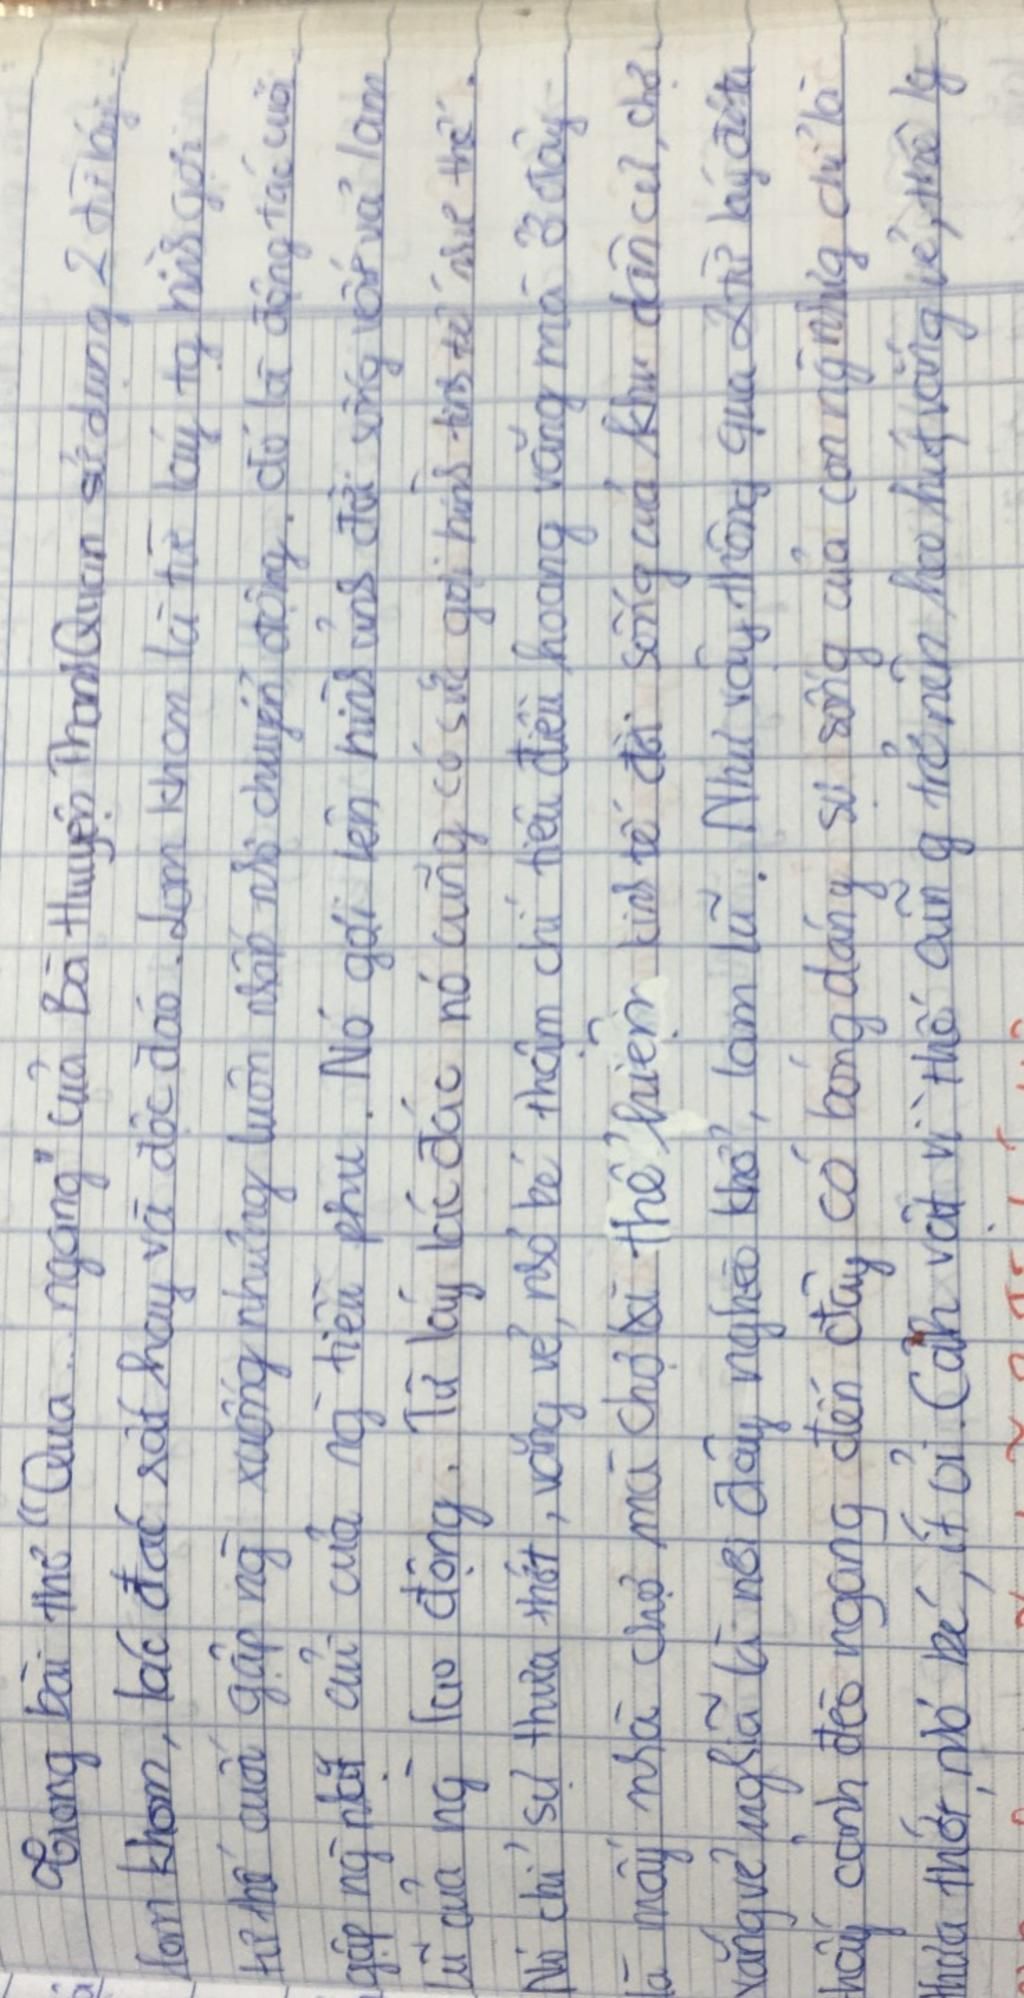 Trong bài thơ "Qua... ngang" của Bà Huyện Thanh Quan sử dụng 2 từ láy
lom khom, lác đác rất hay và độc đáo. Lom khom là từ láy tg hình gợi
tư thế cúi gập ng xuống nhưng luôn nhấp nhô chuyển động. đó là động tác cúi
gập ng nhặt củi của ng tiều phu. Nó gợi lên hình ảnh đời sống vất vả lam
lũ của ng lao động. Từ láy lác đác nó cũng có sức gợi hình tinh tế như thế.
Nó chỉ sự thưa thớt, vắng vẻ, nhỏ bé thậm chí tiêu điều hoang vắng mà ở đây
là mấy nhà chợ mà chợ thì thể hiện kinh tế đời sống của khu dân cư, chợ
vắng vẻ nghĩa là nơi đây nghèo khổ, lam lũ. Như vậy thông qua 2 từ láy đã ta
thấy cảnh đèo ngang đến đây có bóng dáng sự sống của con ng nhưng chỉ là
thưa thớt, nhỏ bé, ít ỏi. Cảnh vật vì thế cũng trở nên heo hút, vắng vẻ,